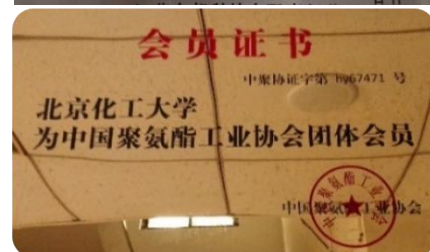 会员证书
中聚协证字第 h967471 号
北京化工大学
为中国聚氨酯工业协会团体会员
中国聚氨酯工业协会